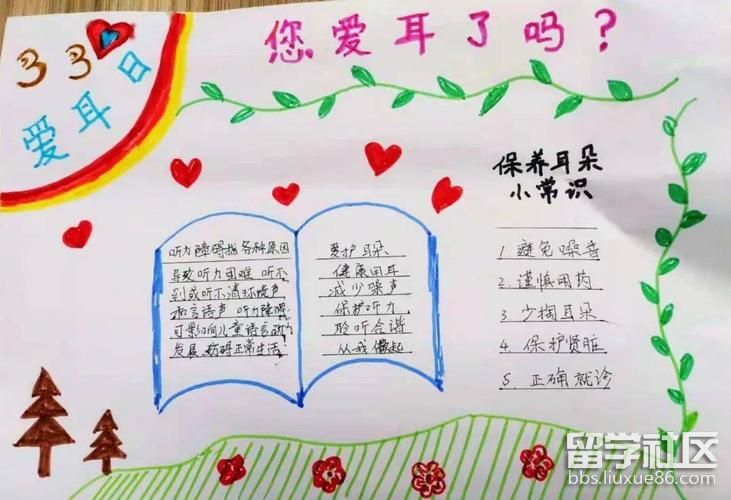 您爱耳了吗？
33
爱耳日
听力障碍指各种原因
导致听力困难,听不
到或听不清环境声
和言语声,听力障碍
可影响儿童语言能力
发展,妨碍正常生活.
爱护耳朵
健康同耳
减少噪声
保护听力
聆听合谐
从我做起
保养耳朵
小常识
1. 避免噪音
2. 谨慎用药
3 少掏耳朵
4. 保护肾脏
5. 正确就诊
留学社区
bbs.liuxue86.com